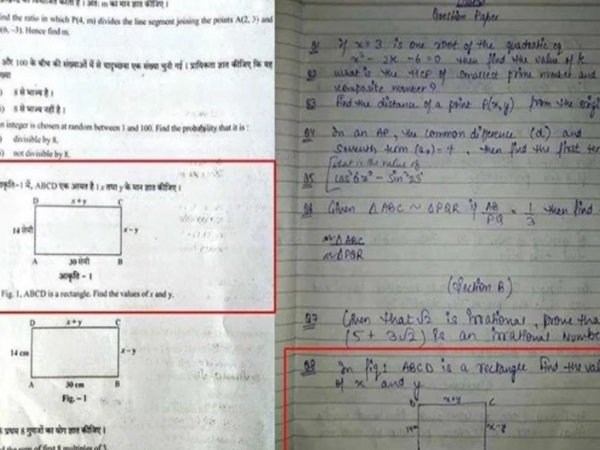 ind the ratio in which P(4, m) divides the line segment joining the points A(2, 3) and
(6, –3). Hence find m.
और 100 के बीच की संख्याओं में से यादृच्छया एक संख्या चुनी गई । प्रायिकता ज्ञात कीजिए कि यह
8 से भाज्य है ।
8 से भाज्य नहीं है ।
n integer is chosen at random between 1 and 100. Find the probability that it is :
divisible by 8.
not divisible by 8.
आकृति-1 में, ABCD एक आयत है । x तथा y के मान ज्ञात कीजिए ।
D x+y C
14 सेमी x–y
A 30 सेमी B
आकृति – 1
Fig. 1, ABCD is a rectangle. Find the values of x and y.
D x+y C
14 cm x–y
A 30 cm B
Fig. – 1
प्रथम 8 गुणजों का योग ज्ञात कीजिए ।
sum of first 8 multiples of 3.
Question Paper
Q1 If x = 3 is one root of the quadratic eq
x² – 2k – 6 = 0 then find the value of k
Q2 What is the HCF of smallest prime number and
composite number?
Q3 Find the distance of a point P(x,y) from the origi
Q4 In an AP, the common difference (d) and
Seventh term (a₇) = 4, then find the first ter
What is the value of
Q5 Cos² 67° – Sin² 23°
Q6 Given ΔABC ~ ΔPQR if AB/PQ = 1/3 then find
ar ΔABC
ar ΔPQR
(Section B)
Q7 Given that √2 is irrational, prove tha
(5 + 3√2) is an irrational Numbe
Q8 In fig 1 ABCD is a rectangle find the val
of x and y
D x+y C
14 x-y